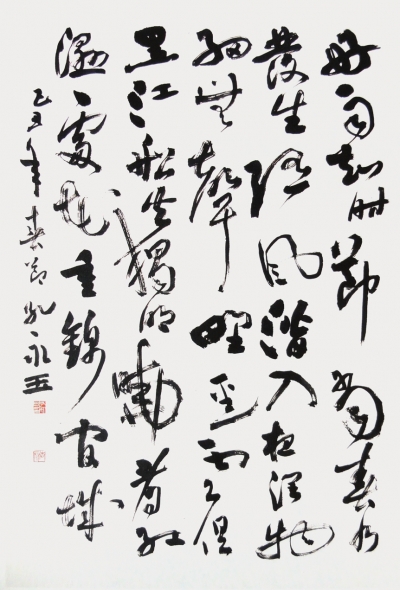 好雨知时節當春乃
發生随風潛入夜潤物
細無聲野径云俱
黑江船火獨明曉看紅
濕處花重錦官城
己丑年春節